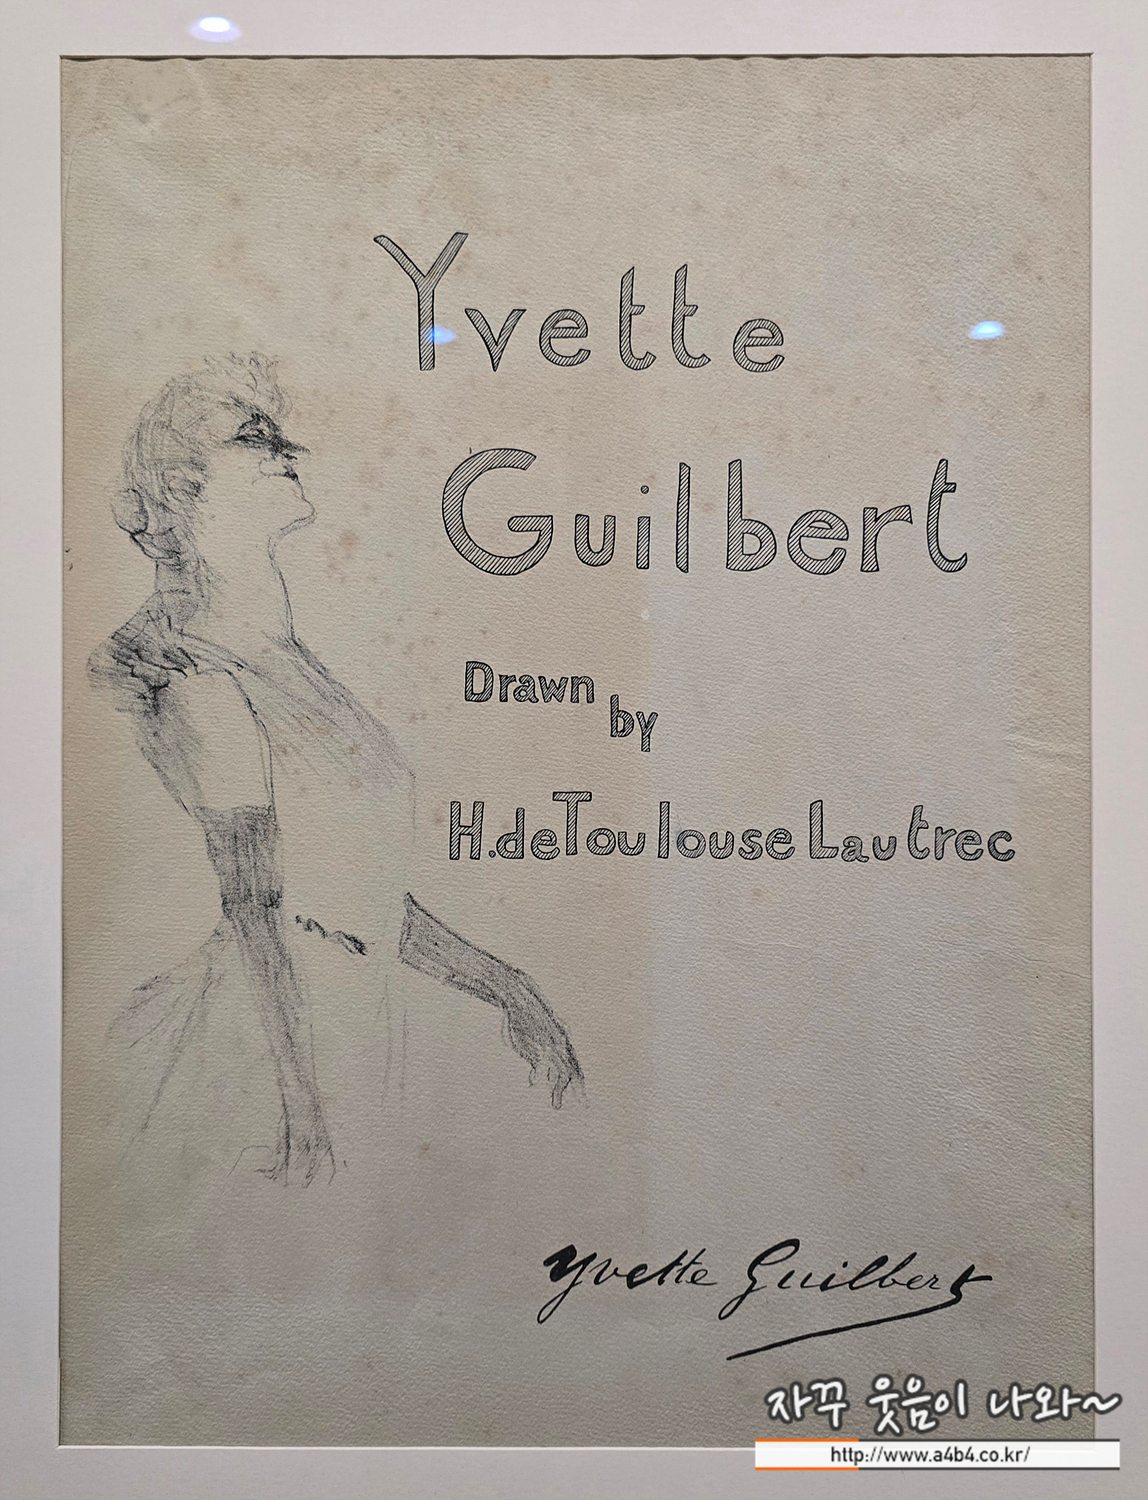 Yvette
Guilbert
Drawn
by
H.de Toulouse Lautrec
Yvette Guilbert
자꾸 웃음이 나와~
http://www.a4b4.co.kr/